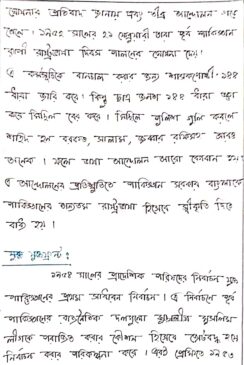 ঘোষনার প্রতিবাদ জানায় এবং তীব্র আন্দোলন গড়ে
তোলে। ১৯৫২ সালের ২১ ফেব্রুয়ারী তারা পূর্ব পাকিস্তান
ব্যাপী রাষ্ট্রভাষা দিবস পালনের ঘোষনা দেয়।
এ কর্মসূচিকে বানচাল করার জন্য শাসকগোষ্ঠী ১৪৪
ধারা জারি করে। কিন্তু ছাত্র জনতা ১৪৪ ধারা ভঙ্গ
করে মিছিল বের করে। মিছিলে পুলিশ গুলি করলে
শহিদ হন বরকত, সালাম, জব্বার রফিকসহ আরও
অনেকে। ফলে ভাষা আন্দোলন আরো বেগবান হয়।
এ আন্দোলনের প্রতিশ্রুতিতে পাকিস্তান সরকার বাংলাকে
পাকিস্তানের অন্যতম রাষ্ট্রভাষা হিসেবে স্বীকৃতি দিতে
বাধ্য হয়।
যুক্তফ্রন্ট:
১৯৫৪ সালের প্রাদেশিক পরিষদের নির্বাচন পূর্ব
পাকিস্তানের প্রথম অধিবেন নির্বাচন। এ নির্বাচনে পূর্ব
পাকিস্তানের রাজনৈতিক দলগুলো মুসলিম
লীগকে পরাজিত করার কৌশল হিসেবে জোটবদ্ধ হয়ে
নির্বাচন করার পরিকল্পনা করে। এরই প্রেক্ষিতে ১৯৫৩